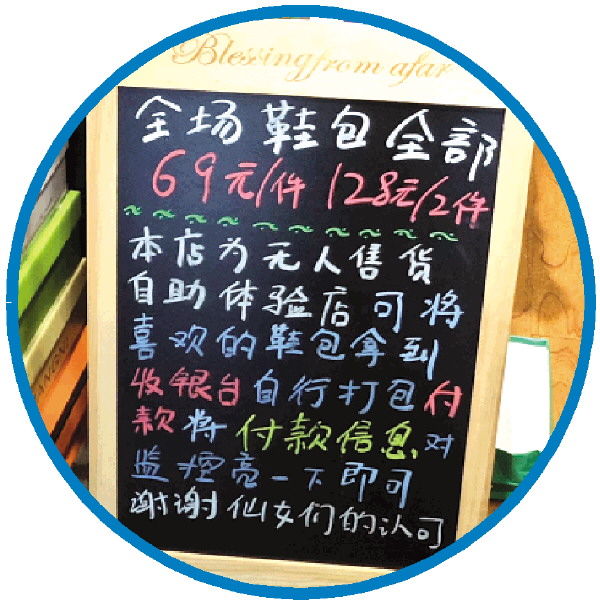 Blessing from afar
全场鞋包全部
69元/件 128元/2件
本店为无人售货
自助体验店可将
喜欢的鞋包拿到
收银台自行打包付
款将付款信息对
监控亮一下即可
谢谢仙女们的认可